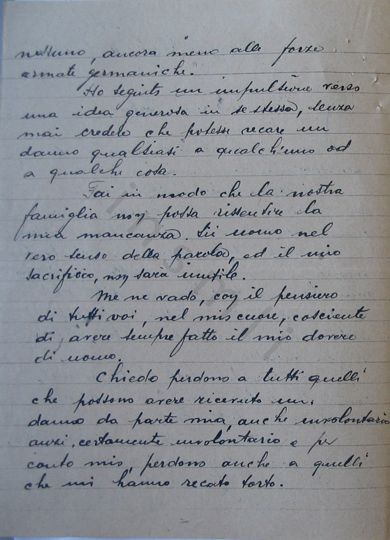 nessuno, ancora meno alle forze
armate germaniche.
Ho seguito un impulsione verso
una idea generosa in se stessa, senza
mai credere che potesse recare un
danno qualsiasi a qualch'uno od
a qualche cosa.
Fai in modo che la nostra
famiglia non possa risentire la
mia mancanza. Sii uomo nel
vero senso della parola, ed il mio
sacrificio, non sarà inutile.
Me ne vado, con il pensiero
di tutti voi, nel mio cuore, cosciente
di avere sempre fatto il mio dovere
di uomo.
Chiedo perdono a tutti quelli
che possono avere ricevuto un
danno da parte mia, anche involontario
anzi, certamente involontario e per
conto mio, perdono anche a quelli
che mi hanno recato torto.